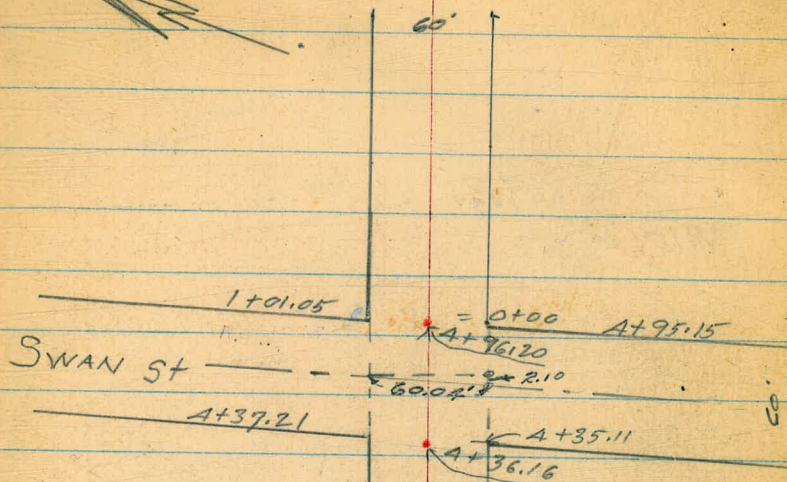 60'
1+01.05
= 0+00
4+95.15
4+96.20
SWAN St
2.10
60.04'
60'
4+37.21
4+35.11
4+36.16